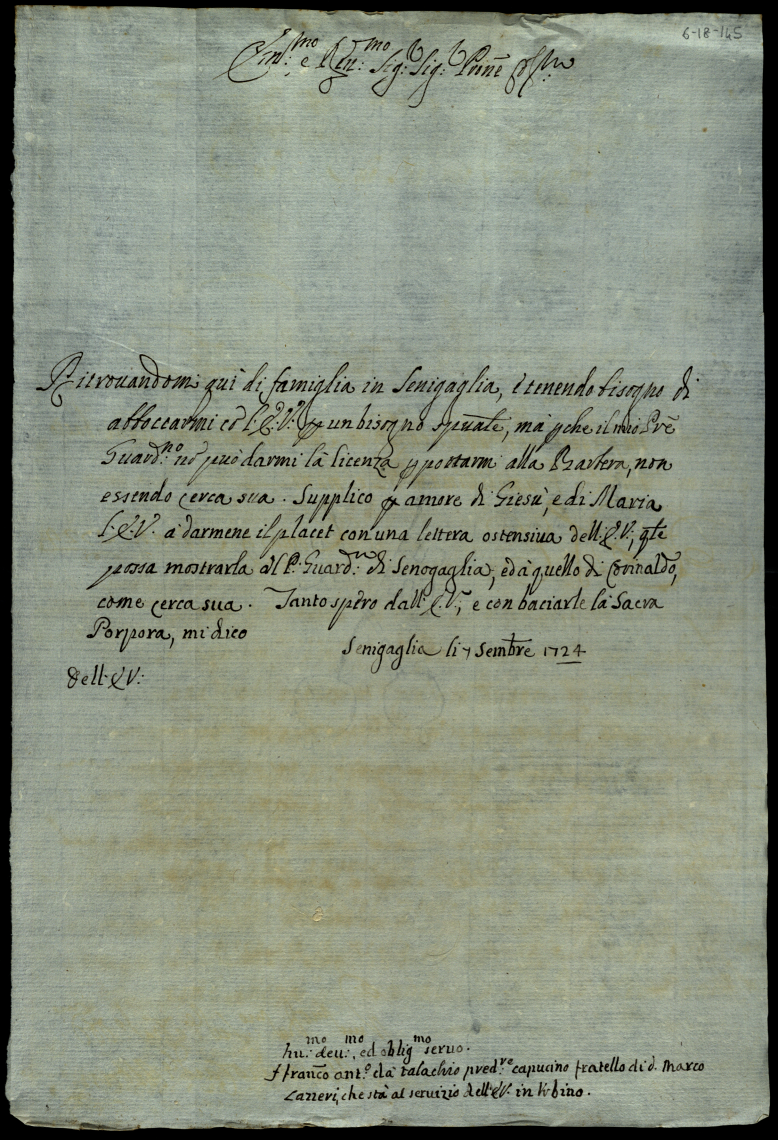 6-18-145
Em:mo e Rev:mo Sig:r Sig:r Prõne
Ritrouandomi quì di famiglia in Senigaglia, è tenendo bisogno di
abboccarmi cõ l'E:V: p un bisogno spũale, mà pche il mio Prẽ
Guard:no nõ può darmi là licenza p portarmi alla Barbera, non
essendo cerca sua. Supplico p amore di Giesù, e di Maria
l'E:V. à darmene il placet con una lettera ostensiua dell'E:V:, qle
possa mostrarla àl P: Guard:no di Senogaglia, ed à quello di Corinaldo,
come cerca sua. Tanto spero dall'E:V:, e con baciarle là Sacra
Porpora, mi dico
Senigaglia li 7 Sembre 1724
dell'E:V:
hu:mo deu:mo, ed oblig:mo seruo.
f franco ant:o dà talachio pred:re capucino fratello di d. Marco
che stà al seruizio dell'E:V: in Vrbino.